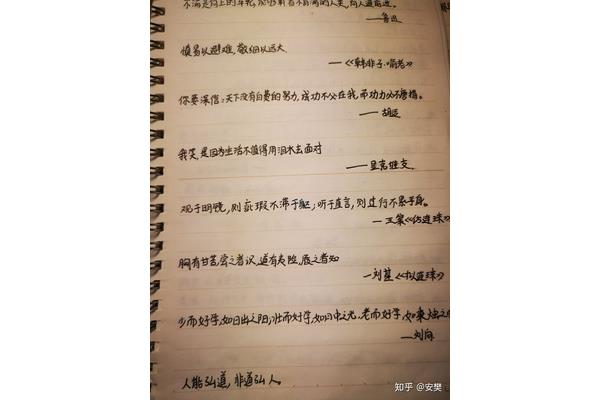 不满是向上的车轮,能够载着不自满的人类,向人道前进。
——鲁迅
慎易以避难,敬细以远大
——《韩非子·喻老》
你要深信:天下没有白费的努力,成功不必在我,而功力必不唐捐。
——胡适
我笑,是因为生活不值得用泪水去面对
——显克维支
观于明镜,则疵瑕不滞于躯;听于直言,则过行不累乎身。
—王粲《仿连珠》
胸有甘苦密之者识,道有夷险,履之者知
—刘基《拟连珠》
少而好学,如日出之阳;壮而好学,如日中之光,老而好学,如秉烛之
—刘向
人能弘道,非道弘人。
知乎 @安樊